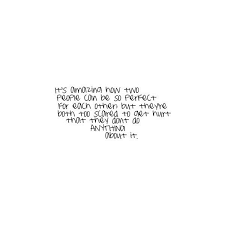 It's amazing how two
people can be so perfect
for each other; but they're
both too scared to get hurt
that they don't do
ANYTHING
about it.